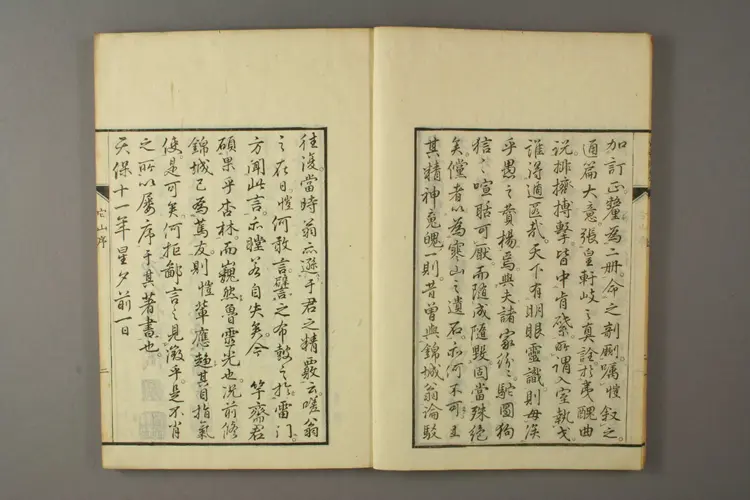 加訂正釐為二冊。命之剞劂。嘱愷叙之。
通篇大意。張皇軒岐之真詮於夷醜曲
説。排擠搏擊。皆中肯綮。所謂入室執戈
誰得遁匿哉。天下有明眼靈識則毋俟
乎愚之賛揚焉。與夫諸家紛〻駝圖狗
狺〻喧聒可厭而隨成隨毀固當殊絶
矣。儻者以為寒山之遺石。亦何不可。
其精神魂魄一則。昔曽與錦城翁論駁
往復當時翁亦遜于君之精覈云。嗟翁
之在日。愷何敢言。譬之布鼓之於雷門。
方聞此言。亦瞠若自失矣。今 竽齋君
碩果乎杏林而巍然魯靈光也。況前脩
錦城已為篤友則愷輩應趨其目指氣
使是可矣何拒鄙言之見徴乎。是不肖
之所以屡序于其著書也。
天保十一年星夕前一日
山序
二